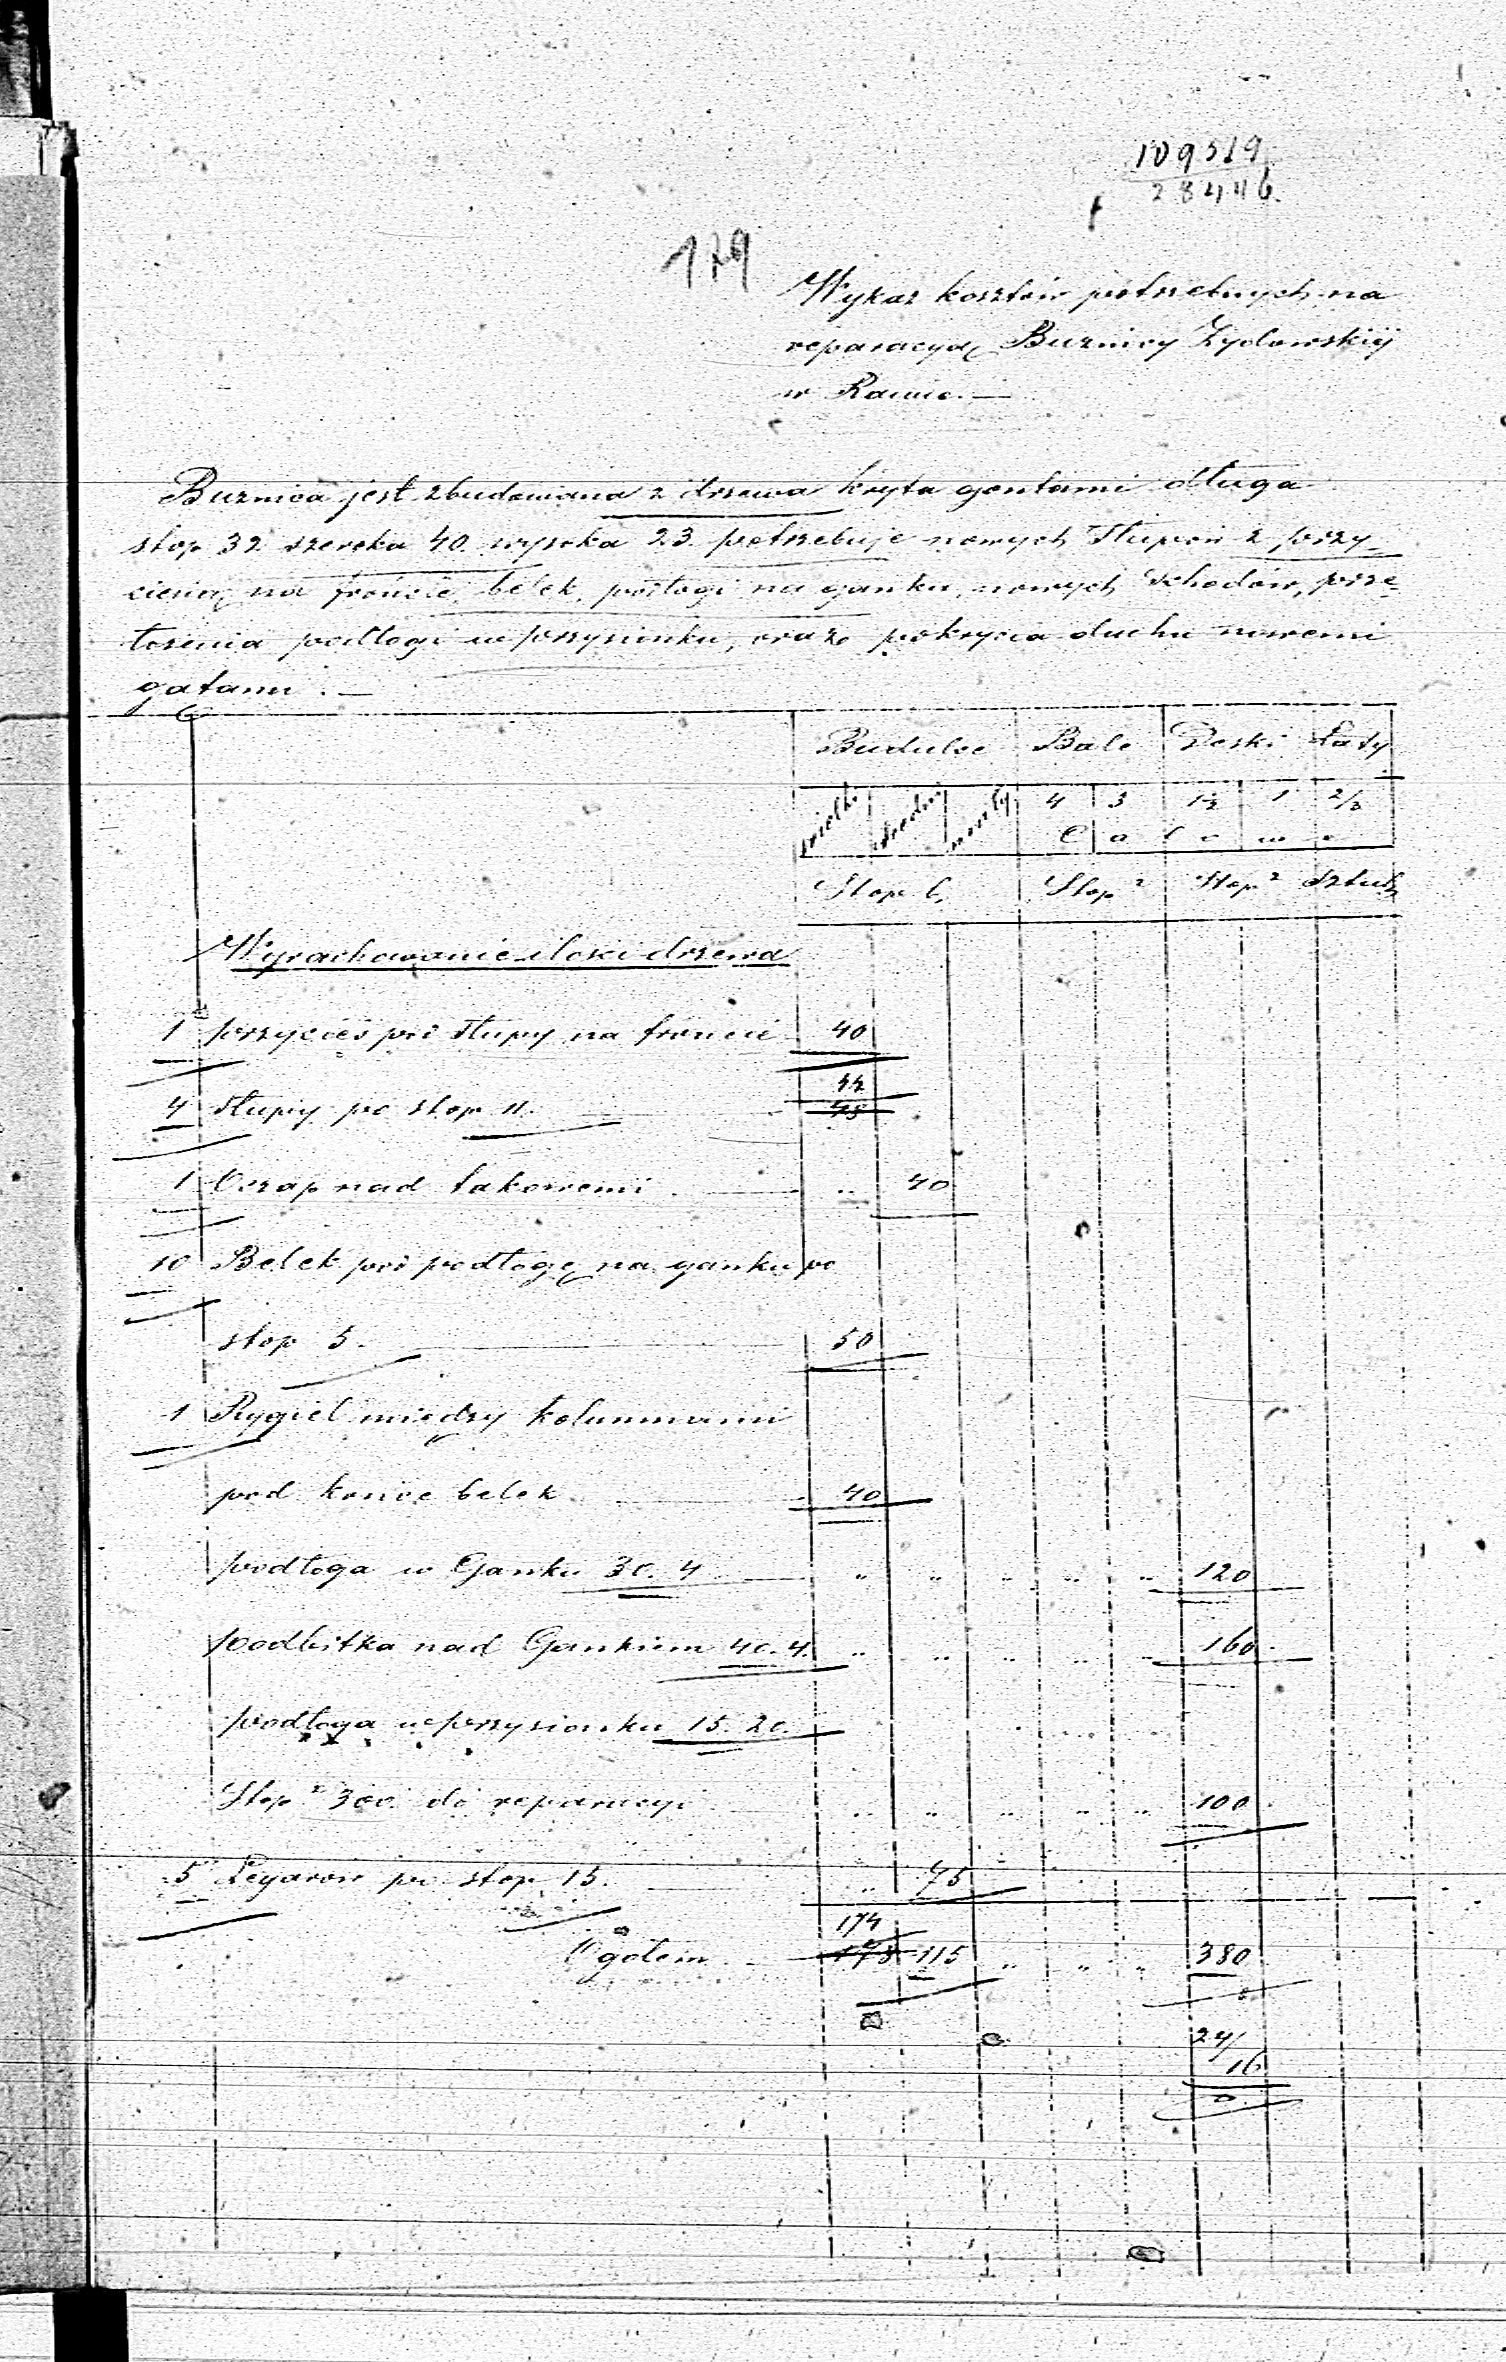 109519
28446.
179
Wykaz kosztów potrzebnych na
reparacyą Buznicy Żydowskiÿ
w Rawie. —
Buznica jest zbudowana z drzewa kryta gontami długa
stop 32 szeroka 40. wysoka 23. potrzebuje nowych słupow z przy-
ciesią na froncie, belek, podłogi na ganku, nowych schodów, prze-
łożenia podłogi w przysionku, oraz pokrycia dachu nowemi
gatami. —
Budulec Bale Deski Łaty
wielki średni mały 4 3 1½ 1 2/3
C a l o w e
Stop b. Stop² Stop² Sztuk
Wyrachowanie ilosci drzewa
1 przycieś pod słupy na froncie 40
44
4 słupy po stop 11. — 48
1 Oczap nad takowemi — " 40
10 Belek pod podłogę na ganku po
stop 5. — 50
1 Rygiel między kolumnami
pod końce belek — 40
podłoga w Ganku 30. 4 — " " " " " 120
podbitka nad Gankiem 40. 4. " " " " " 160
podłoga w przysionku 15. 20.
Stop² 300. do reparacyi " " " " " 100
5 Legarow po stop 15. — " 75
174
Ogołem — 178 115 " " " 380
24/
16